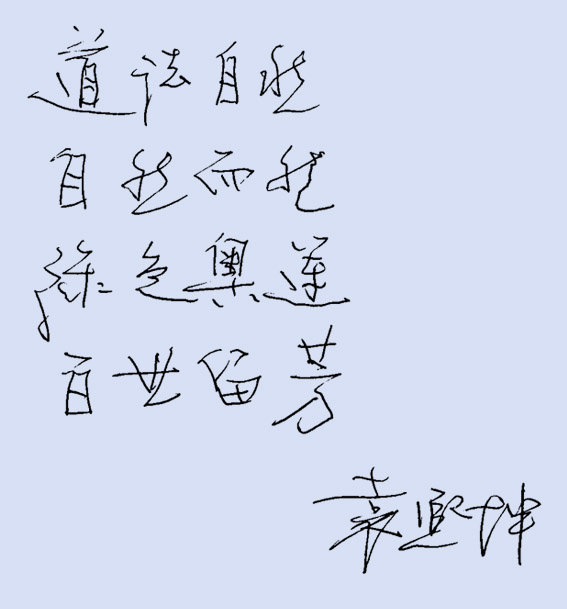 道法自然
自然而然
绿色奥运
百世留芳
袁熙坤